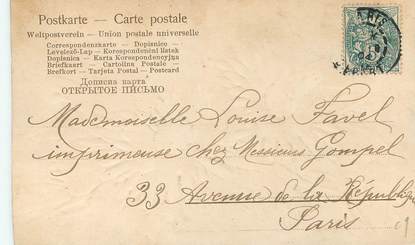 Postkarte – Carte postale
Weltpostverein – Union postale universelle
Correspondenzkarte – Dopisnice –
Levelező-Lap – Korespondenční lístek
Dopisnica – Karta Korespondencyjna
Briefkaart – Cartolina Postale –
Brefkort – Tarjeta Postal – Postcard
Дописна карта
ОТКРЫТОЕ ПИСЬМО
PARIS
DEPART
Mademoiselle Louise Favel
imprimeuse chez Messieurs Gompel
33 Avenue de la République
Paris